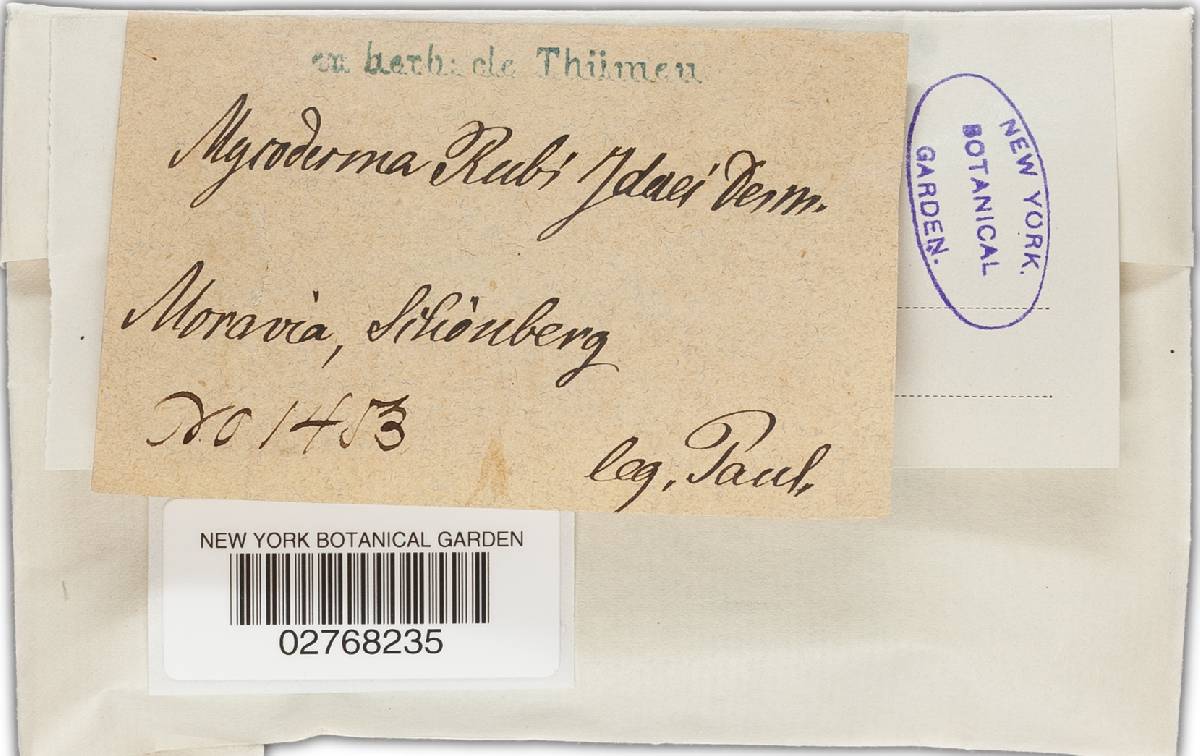 ex herb: de Thümen
Mycoderma Rubi Idaei Desm.
Moravia, Schönberg
No 1483
leg. Paul.
NEW YORK.
BOTANICAL
GARDEN.
NEW YORK BOTANICAL GARDEN
02768235